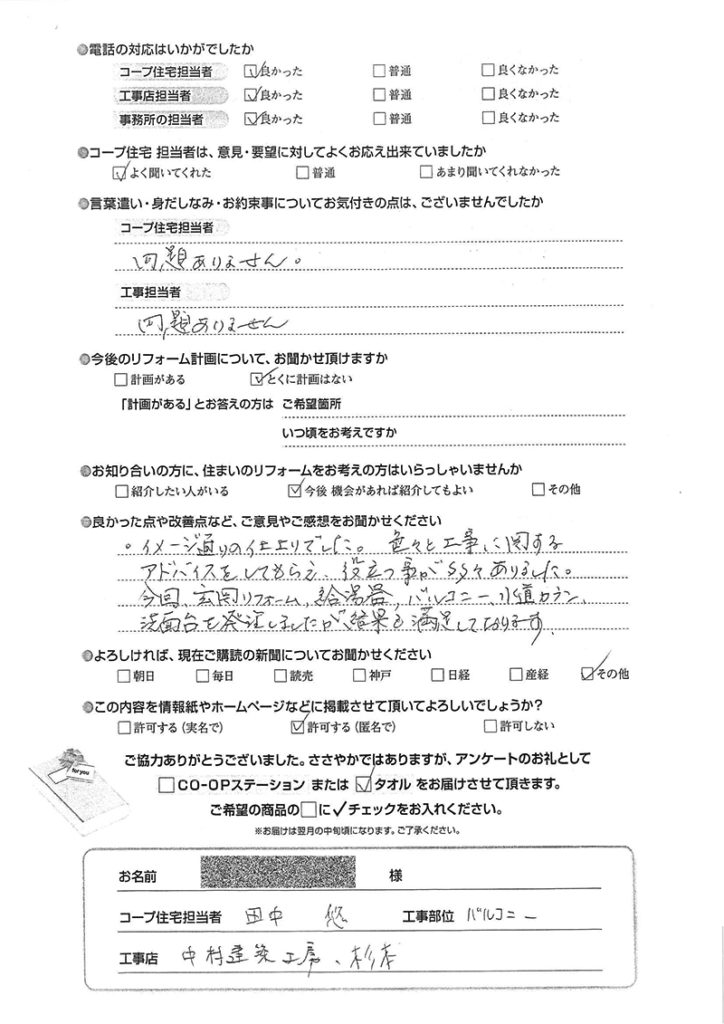 ●電話の対応はいかがでしたか
コープ住宅担当者 ☑良かった □普通 □良くなかった
工事店担当者 ☑良かった □普通 □良くなかった
事務所の担当者 ☑良かった □普通 □良くなかった
●コープ住宅 担当者は、意見・要望に対してよくお応え出来ていましたか
☑よく聞いてくれた □普通 □あまり聞いてくれなかった
●言葉遣い・身だしなみ・お約束事についてお気付きの点は、ございませんでしたか
コープ住宅担当者
問題ありません。
工事担当者
問題ありません
●今後のリフォーム計画について、お聞かせ頂けますか
□計画がある ☑とくに計画はない
「計画がある」とお答えの方は ご希望箇所
いつ頃をお考えですか
●お知り合いの方に、住まいのリフォームをお考えの方はいらっしゃいませんか
□紹介したい人がいる ☑今後 機会があれば紹介してもよい □その他
●良かった点や改善点など、ご意見やご感想をお聞かせください
。イメージ通りの仕上りでした。色々と工事に関する
アドバイスをしてもらえ、役立つ事が多々ありました。
今回、玄関リフォーム、給湯器、バルコニー、水道カラン、
洗面台を発注しましたが、結果も満足しております。
●よろしければ、現在ご購読の新聞についてお聞かせください
□朝日 □毎日 □読売 □神戸 □日経 □産経 ☑その他
●この内容を情報紙やホームページなどに掲載させて頂いてよろしいでしょうか?
□許可する(実名で) ☑許可する(匿名で) □許可しない
for you
ご協力ありがとうございました。ささやかではありますが、アンケートのお礼として
□CO-OPステーション または ☑タオル をお届けさせて頂きます。
ご希望の商品の□に✓チェックをお入れください。
※お届けは翌月の中旬頃になります。ご了承ください。
お名前 様
コープ住宅担当者 田中 悠 工事部位 バルコニー
工事店 中村建築工房、杉本